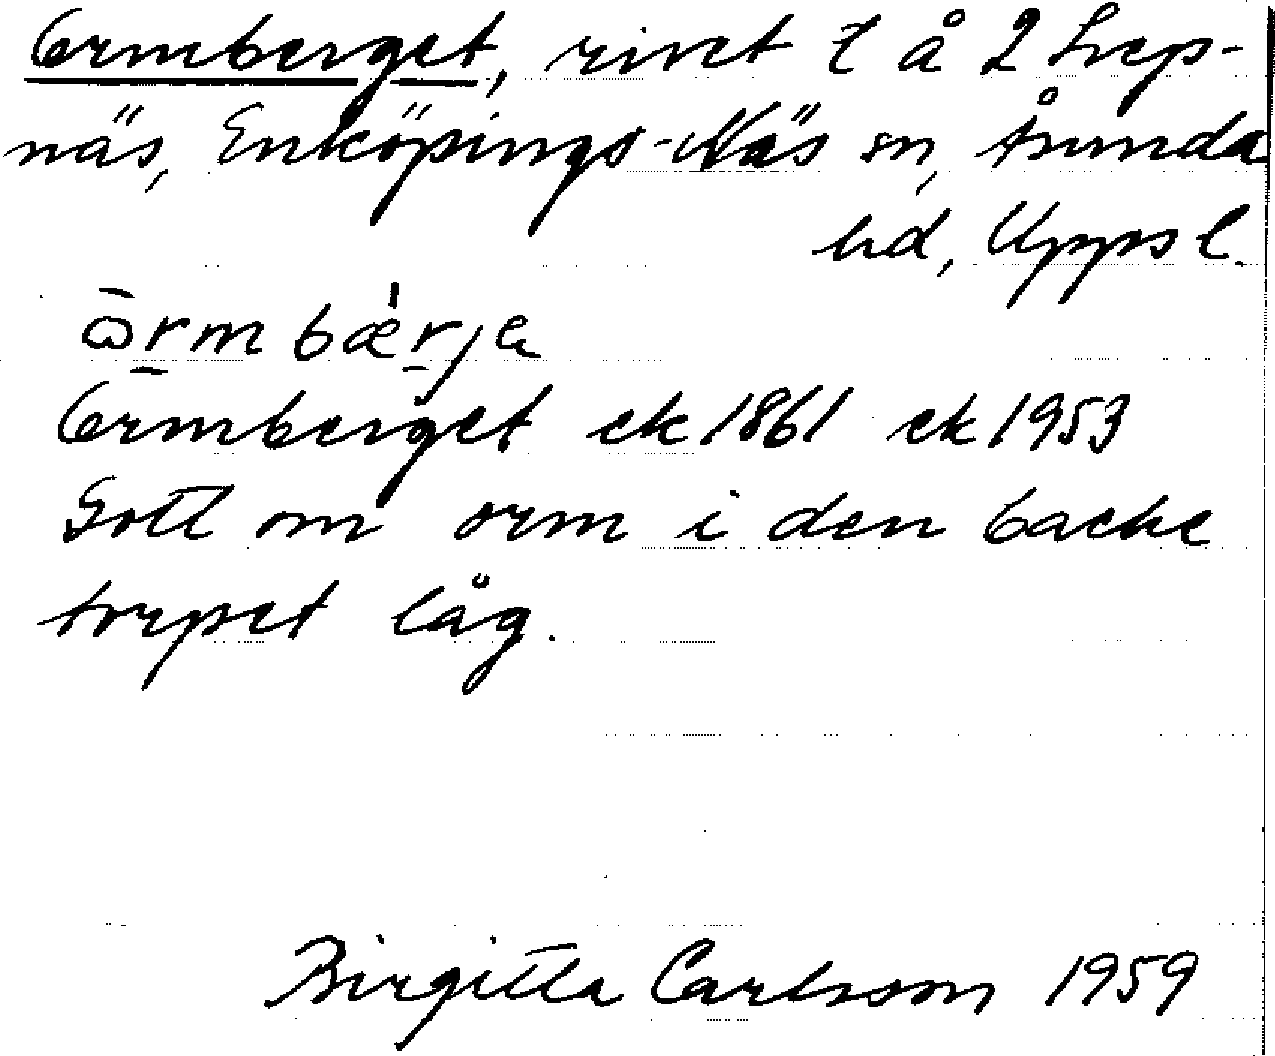 Ormberget, rivet t å 2 Svep-
näs, Enköpings-Näs sn, Trunda
hd, Uppsl.
ɷ̄rmbæ̀rja
Ormberget ek 1861 ek 1953
Gott om orm i den backe
torpet låg.
Birgitta Carlsson 1959